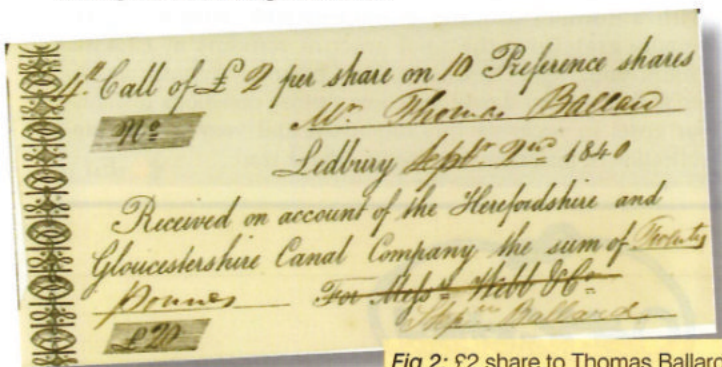 4th Call of £ 2 per share on 10 Preference shares
No
Mr. Thomas Ballard
Ledbury Septr 2nd 1840
Received on account of the Herefordshire and
Gloucestershire Canal Company the sum of Twenty
Pounds For Messrs Webb & Co
£20
Stepn Ballard
Fig 2: £2 share to Thomas Ballard